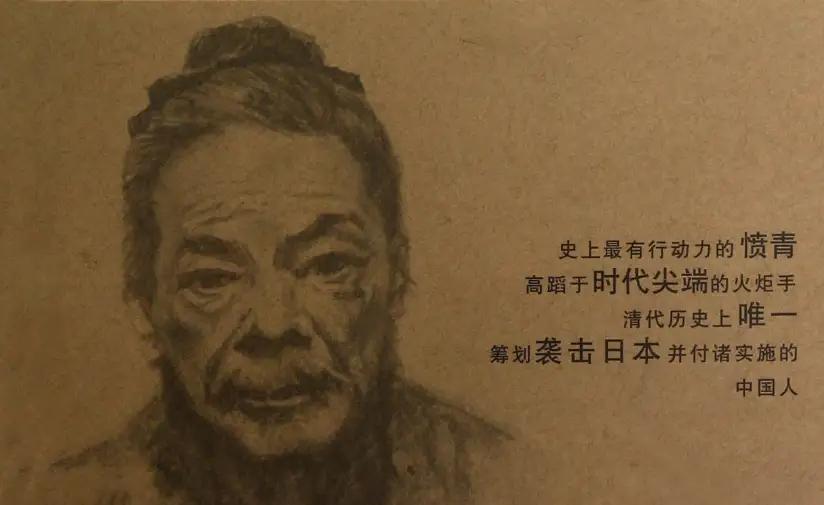 史上最有行动力的愤青
高蹈于时代尖端的火炬手
清代历史上唯一
筹划袭击日本并付诸实施的
中国人